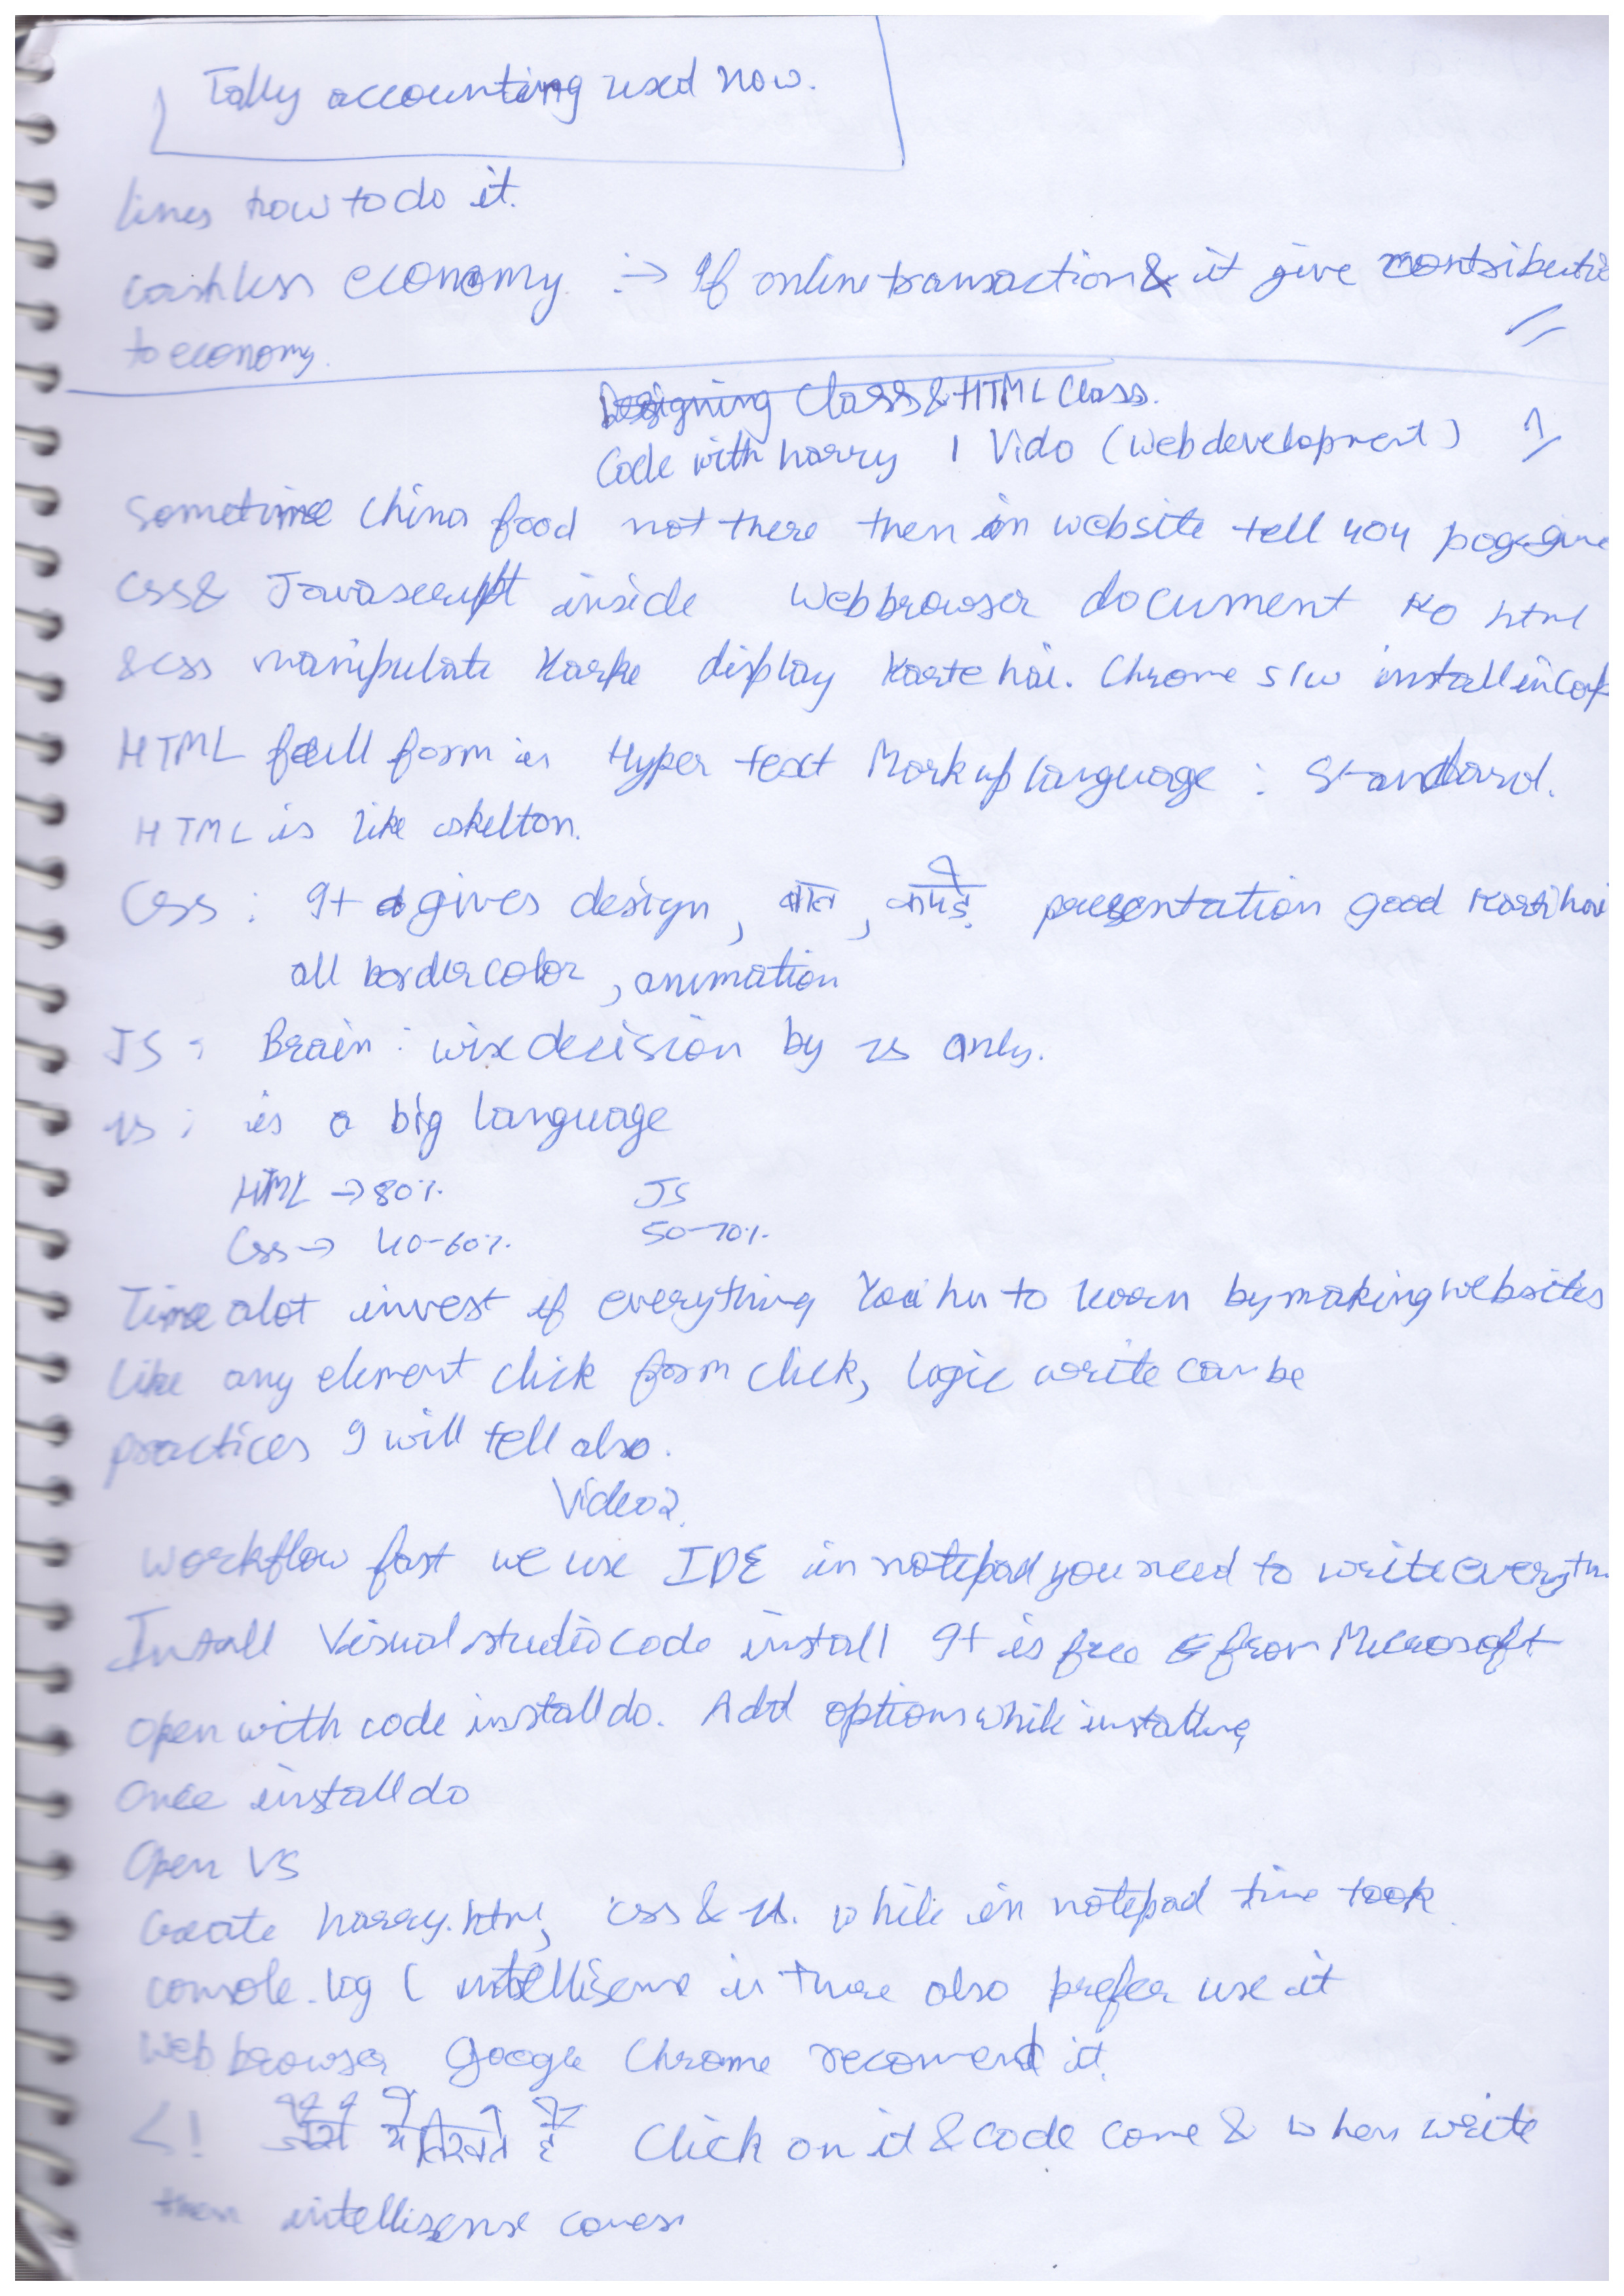 Tally accounting used now.
lines how to do it.
Cashless economy :→ If online transaction & it give contributio
to economy.
Designing Class & HTML Class.
Code with harry 1 Vido (Web development) 1
Sometime China food not there then in website tell 404 page give
CSS & Javascript inside Web browser document ko html
& css manipulate karke display karte hai. Chrome s/w install in
HTML full form is Hyper text Markup language : Standard.
HTML is like skelton.
Css : It gives design, presentation good karti hai
all border color, animation
JS : Brain : wise decision by JS only.
JS : is a big language
HTML → 80% JS
Css → 40-60% 50-70%
Time alot invest if everything You to learn by making websites
like any element click form click, logic write can be
practices I will tell also.
Video 2
Workflow fast we use IDE in notepad you need to write everyth
Install Visual studio code install It is free from Microsoft
open with code install do. Add option while installing
Once install do
Open VS
Create harry.html, css & JS. while in notepad time took
console.log ( intellisense is there also prefer use it
Web browser Google Chrome recomend it.
<! Click on it & code come & when write
then intellisense comes